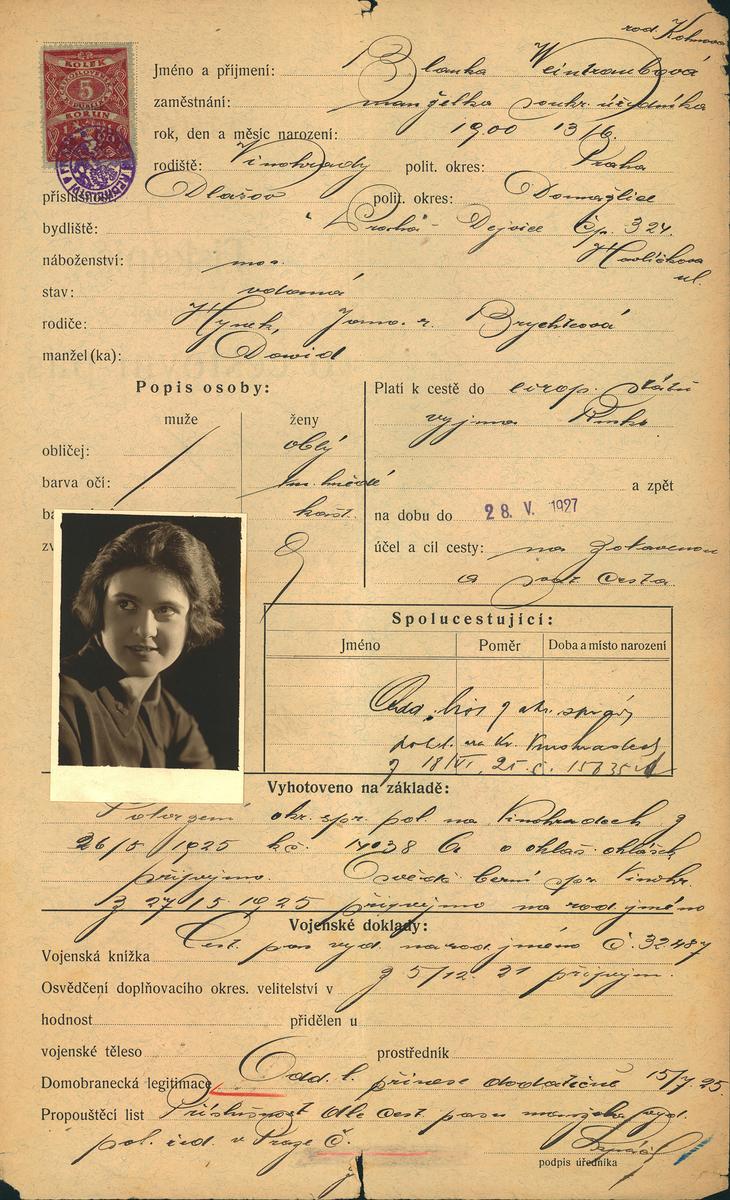 rod. Kohnová
KOLEK
5
KORUN
Jméno a příjmení: Blanka Weintraubová
zaměstnání: manželka soukr. úředníka
rok, den a měsíc narození: 1900 13/6.
rodiště: Vinohrady polit. okres: Praha
Dlažov polit. okres: Domažlice
bydliště: Praha - Dejvice čp. 324.
Havlíčkova ul.
náboženství: mos.
stav: vdaná
rodiče: Hynek, roz. Brychtová
manžel(ka): David
Popis osoby:
muže ženy
obličej: oblý
barva očí: tm. hnědé
ba kašt.
zv
Platí k cestě do evrop. států
vyjma Ruska
a zpět
na dobu do 28. V. 1927
účel a cíl cesty: na zotavenou
a cesta
Spolucestující:
Jméno Poměr Doba a místo narození
pol. na Kr. Vinohradech
z 18/VI. 25. č. 15035
Vyhotoveno na základě:
Potvrzení okr. spr. pol. na Vinohradech z
26/5 1925 kč. 17038 o ohláš.
připojeno. Osvědč. berní spr. Vinohr.
z 27/5. 1925 připojeno na rod. jméno
Vojenské doklady:
Cest. pas vyd. na rod. jméno č. 32487
Vojenská knížka
z 5/12. 21 připojen.
Osvědčení doplňovacího okres. velitelství v
hodnost přidělen u
vojenské těleso prostředník
Domobranecká legitimace Odd. l. přinese dodatečně 15/7. 25.
Propouštěcí list Příslušnost dle cest. pasu manžela vyd.
pol. řed. v Praze č.
podpis úředníka